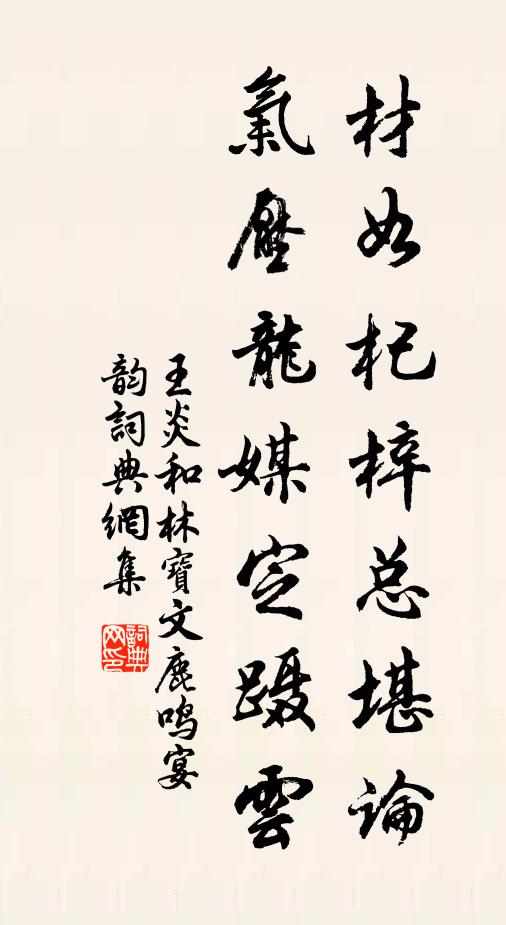 材如杞梓总堪論
氣壓龍媒定蹑雲
王炎和林寶文鹿鸣宴
韵詞典網集
詞典网印